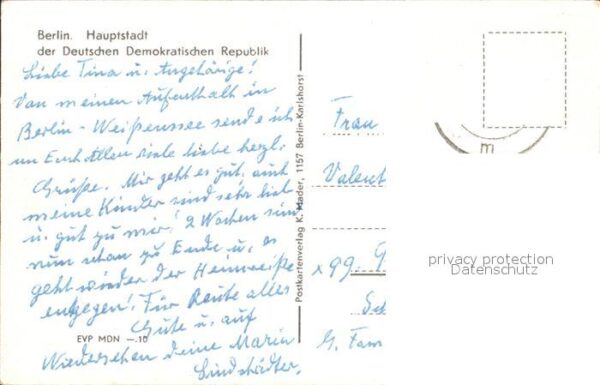 Berlin. Hauptstadt
der Deutschen Demokratischen Republik
Liebe Tina u. Angehörige!
Von meinen Aufenthalt in
Berlin - Weißensee sende ich
an Euch Allen viele liebe herzl.
Grüße. Mir geht es gut, auch
meine Kinder sind sehr lieb
u. gut zu mir! 2 Wochen sind
nun schon zu Ende u. es
geht wieder der Heimreiße
entgegen! Für Heute alles
Gute u. auf
Wiedersehen deine Maria
EVP MDN —.10
Postkartenverlag K. Mader, 1157 Berlin-Karlshorst
Frau
Valent
x 99
G. Fam
m
privacy protection
Datenschutz